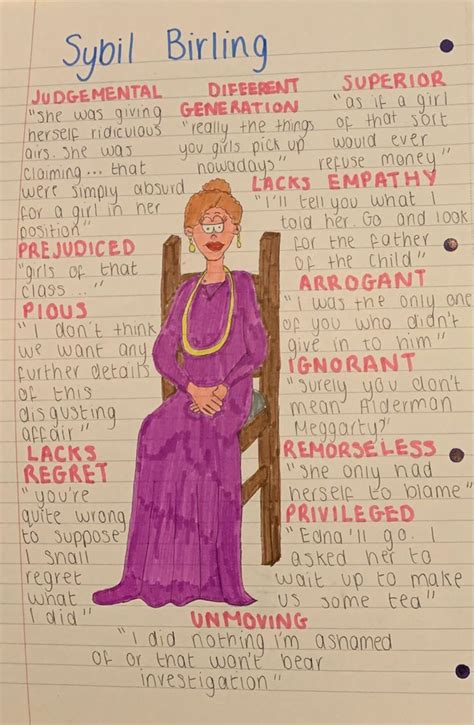 Sybil Birling
JUDGEMENTAL
"she was giving
herself ridiculous
airs. She was
claiming... that
were simply absurd
for a girl in her
position"
DIFFERENT
GENERATION
"really the things
you girls pick up
nowadays"
SUPERIOR
"as if a girl
of that sort
would ever
refuse money"
LACKS EMPATHY
"I'll tell you what I
told her. Go and look
for the father
of the child"
PREJUDICED
"girls of that
class..."
ARROGANT
"I was the only one
of you who didn't
give in to him"
PIOUS
"I don't think
we want any
further details
of this
disgusting
affair"
IGNORANT
"Surely you don't
mean Alderman
Meggarty?"
LACKS
REGRET
"you're
quite wrong
to suppose
I shall
regret
what
I did"
REMORSELESS
"She only had
herself to blame"
PRIVILEGED
"Edna'll go. I
asked her to
wait up to make
us some tea"
UNMOVING
"I did nothing I'm ashamed
of or that won't bear
investigation"